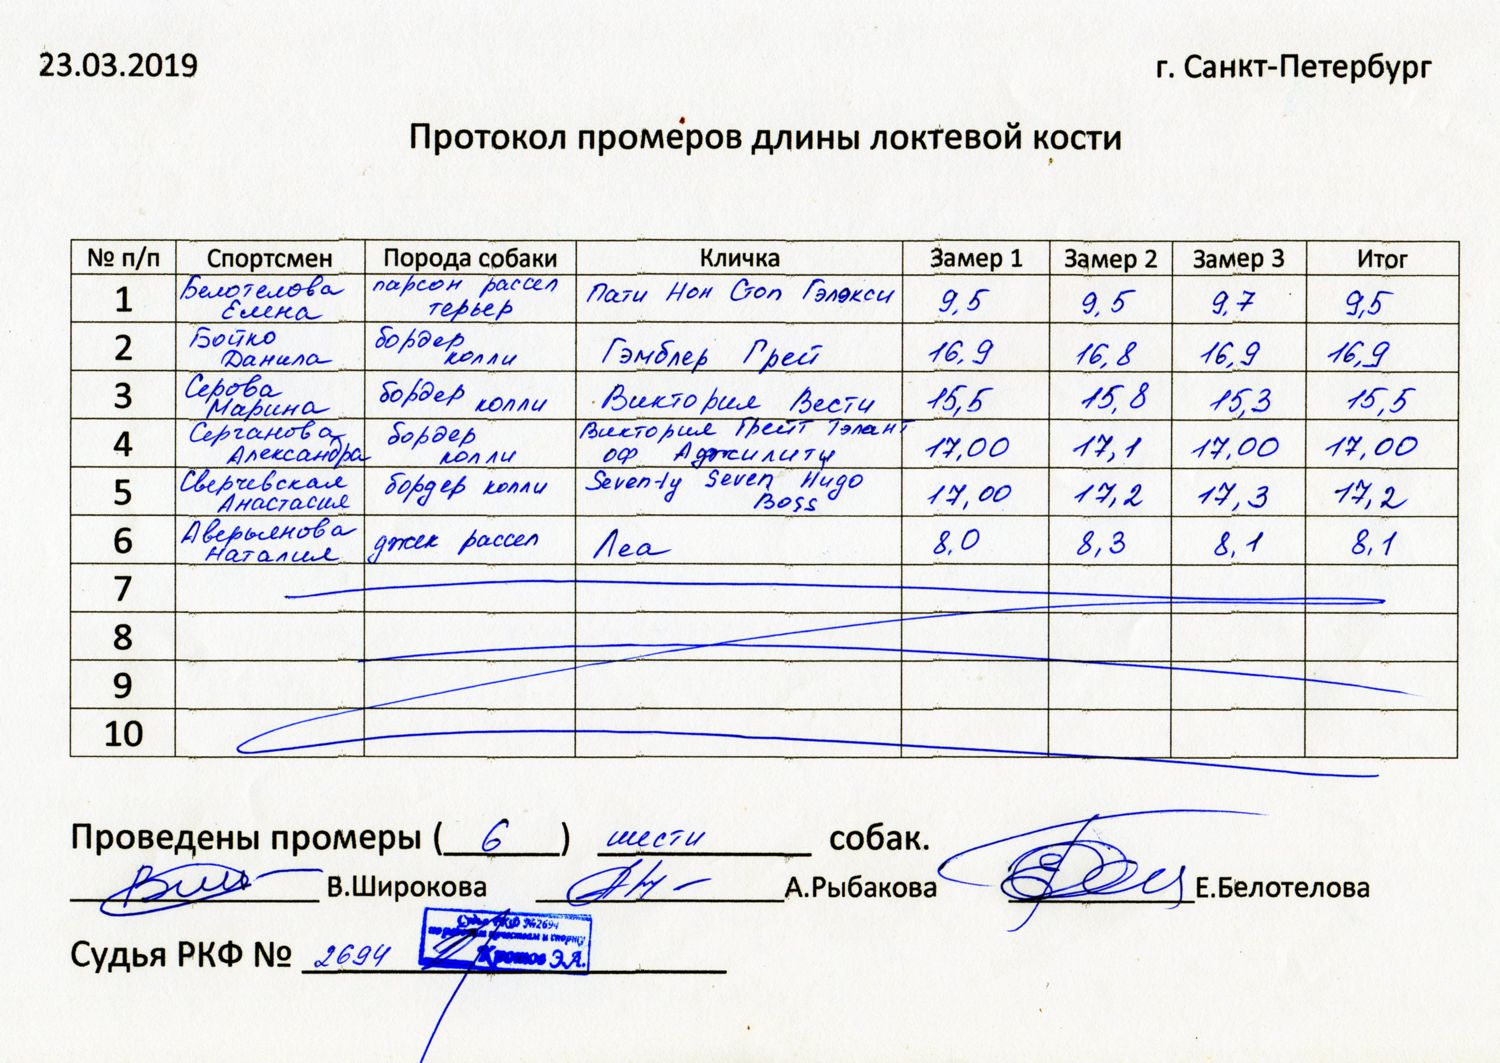 23.03.2019 г. Санкт-Петербург
Протокол промеров длины локтевой кости
№ п/п Спортсмен Порода собаки Кличка Замер 1 Замер 2 Замер 3 Итог
1 Белотелова Елена парсон рассел терьер Пати Нон Стоп Гэлэкси 9,5 9,5 9,7 9,5
2 Бойко Данила бордер колли Гэмблер Грей 16,9 16,8 16,9 16,9
3 Серова Марина бордер колли Виктория Вести 15,5 15,8 15,3 15,5
4 Серганова Александра бордер колли Виктория Грейт Тэлант оф Аджилити 17,00 17,1 17,00 17,00
5 Сверчевская Анастасия бордер колли Seventy Seven Hugo Boss 17,00 17,2 17,3 17,2
6 Аверьянова Наталия джек рассел Леа 8,0 8,3 8,1 8,1
7
8
9
10
Проведены промеры ( 6 ) шести собак.
В.Широкова А.Рыбакова Е.Белотелова
Судья РКФ № 2694
Судья РКФ №2694
по рабочим качествам и спорту
Кротов Э.А.